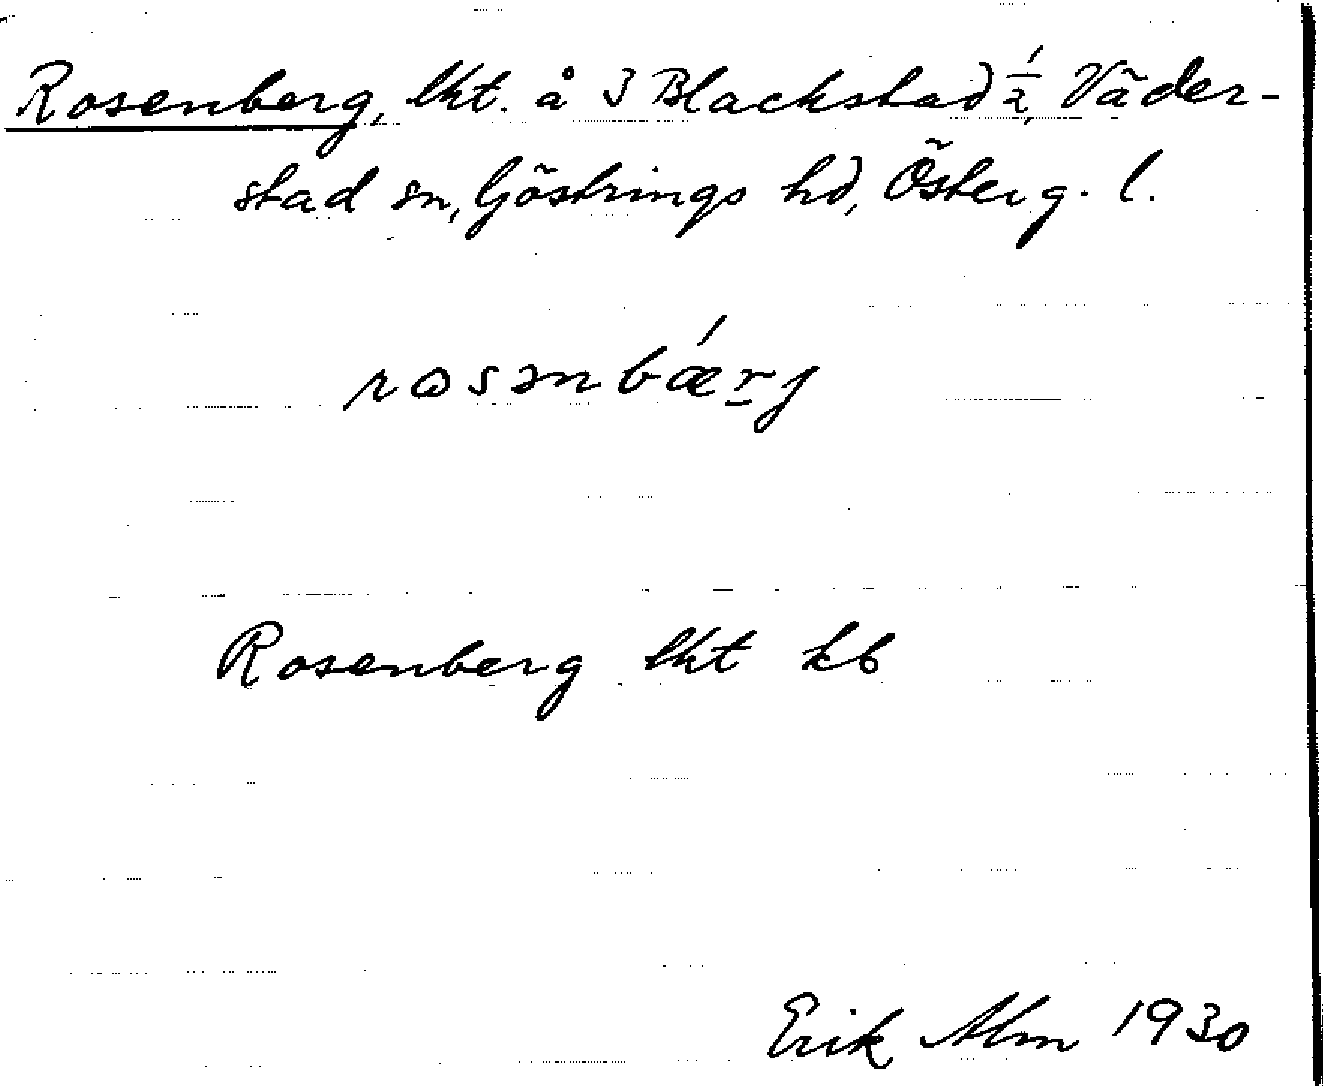 Rosenberg, lht. å 3 Blackstad ½, Väder-
stad sn, Göstrings hd, Österg. l.
rosənbǽrj
Rosenberg lht kb
Erik Alm 1930